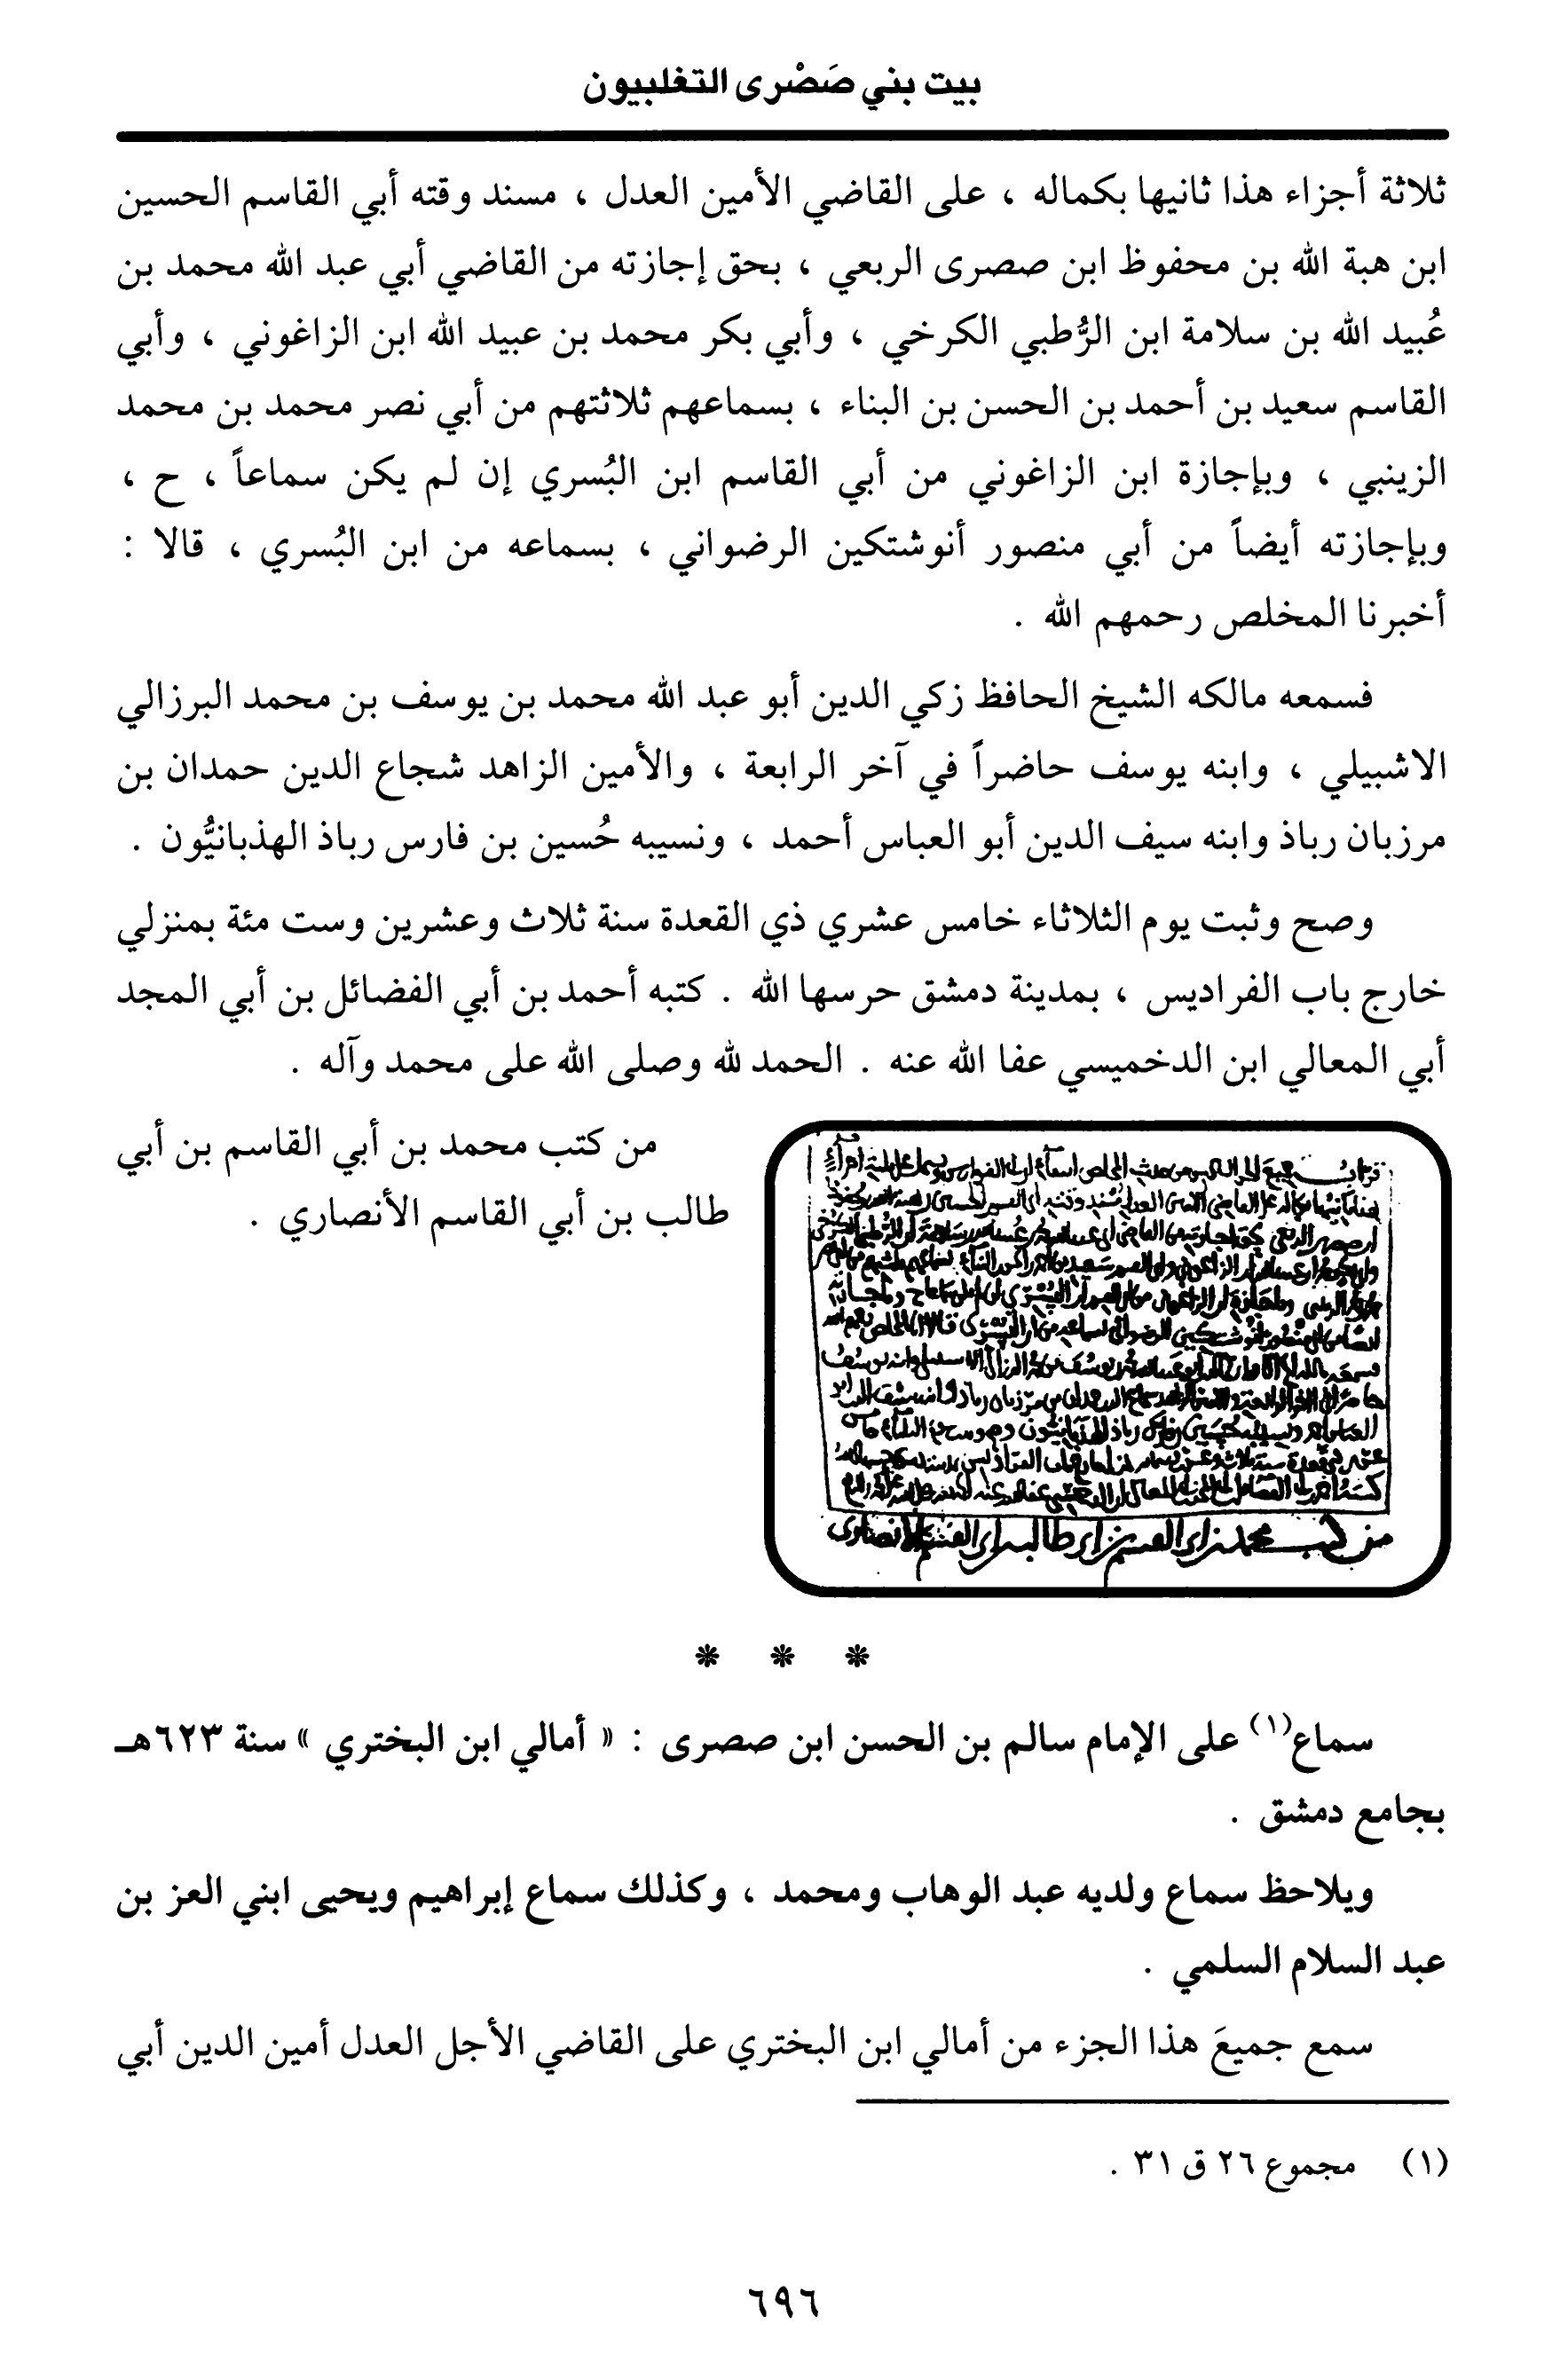 بيت بني صَصْرى التغلبيون
ثلاثة أجزاء هذا ثانيها بكماله ، على القاضي الأمين العدل ، مسند وقته أبي القاسم الحسين
ابن هبة الله بن محفوظ ابن صصرى الربعي ، بحق إجازته من القاضي أبي عبد الله محمد بن
عُبيد الله بن سلامة ابن الرُّطبي الكرخي ، وأبي بكر محمد بن عبيد الله ابن الزاغوني ، وأبي
القاسم سعيد بن أحمد بن الحسن بن البناء ، بسماعهم ثلاثتهم من أبي نصر محمد بن محمد
الزينبي ، وبإجازة ابن الزاغوني من أبي القاسم ابن البُسري إن لم يكن سماعاً ، ح ،
وبإجازته أيضاً من أبي منصور أنوشتكين الرضواني ، بسماعه من ابن البُسري ، قالا :
أخبرنا المخلص رحمهم الله .
فسمعه مالكه الشيخ الحافظ زكي الدين أبو عبد الله محمد بن يوسف بن محمد البرزالي
الاشبيلي ، وابنه يوسف حاضراً في آخر الرابعة ، والأمين الزاهد شجاع الدين حمدان بن
مرزبان رباذ وابنه سيف الدين أبو العباس أحمد ، ونسيبه حُسين بن فارس رباذ الهذبانيُّون .
وصح وثبت يوم الثلاثاء خامس عشري ذي القعدة سنة ثلاث وعشرين وست مئة بمنزلي
خارج باب الفراديس ، بمدينة دمشق حرسها الله . كتبه أحمد بن أبي الفضائل بن أبي المجد
أبي المعالي ابن الدخميسي عفا الله عنه . الحمد لله وصلى الله على محمد وآله .
من كتب محمد بن أبي القاسم بن أبي
طالب بن أبي القاسم الأنصاري .
* * *
سماع(١) على الإمام سالم بن الحسن ابن صصرى : « أمالي ابن البختري » سنة ٦٢٣هـ
بجامع دمشق .
ويلاحظ سماع ولديه عبد الوهاب ومحمد ، وكذلك سماع إبراهيم ويحيى ابني العز بن
عبد السلام السلمي .
سمع جميعَ هذا الجزء من أمالي ابن البختري على القاضي الأجل العدل أمين الدين أبي
(١) مجموع ٢٦ ق ٣١ .
٦٩٦